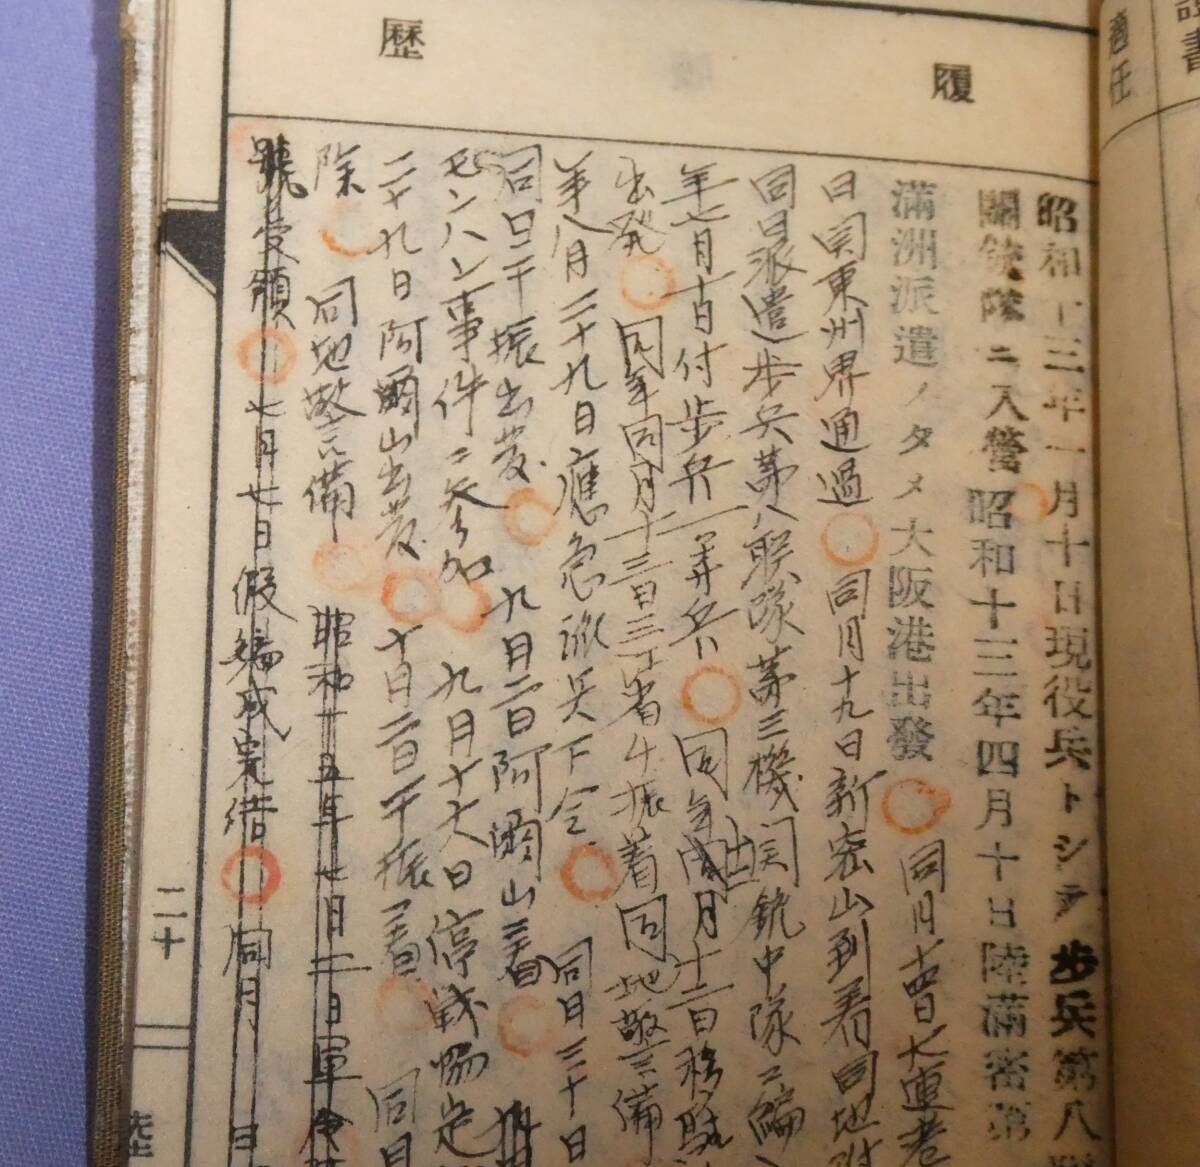 適任
證書
履歷
昭和十三年一月十日現役兵トシテ步兵第八
關銃隊ニ入營 昭和十三年四月十日陸滿密第
滿洲派遣ノタメ大阪港出發 同月十四日大連港
日関東州界通過 同月十九日新密山到着同地附
同日派遣步兵第八聯隊第三機関銃中隊ニ編入
年七月十日付步兵一等兵 同年同月十二日移駐
出発 同年同月十三日三江省千振着同地警備
第八月二十九日應急派兵下令 同月三十日
同日千振出發 九月二日阿爾山着
モンハン事件ニ参加 九月十六日停戦協定
二十九日阿爾山出發 十月二日千振着 同日
除 同地警備 昭和十五年七月二日軍令
號受領 七月廿日假編成完結 同月 日
二十
陸